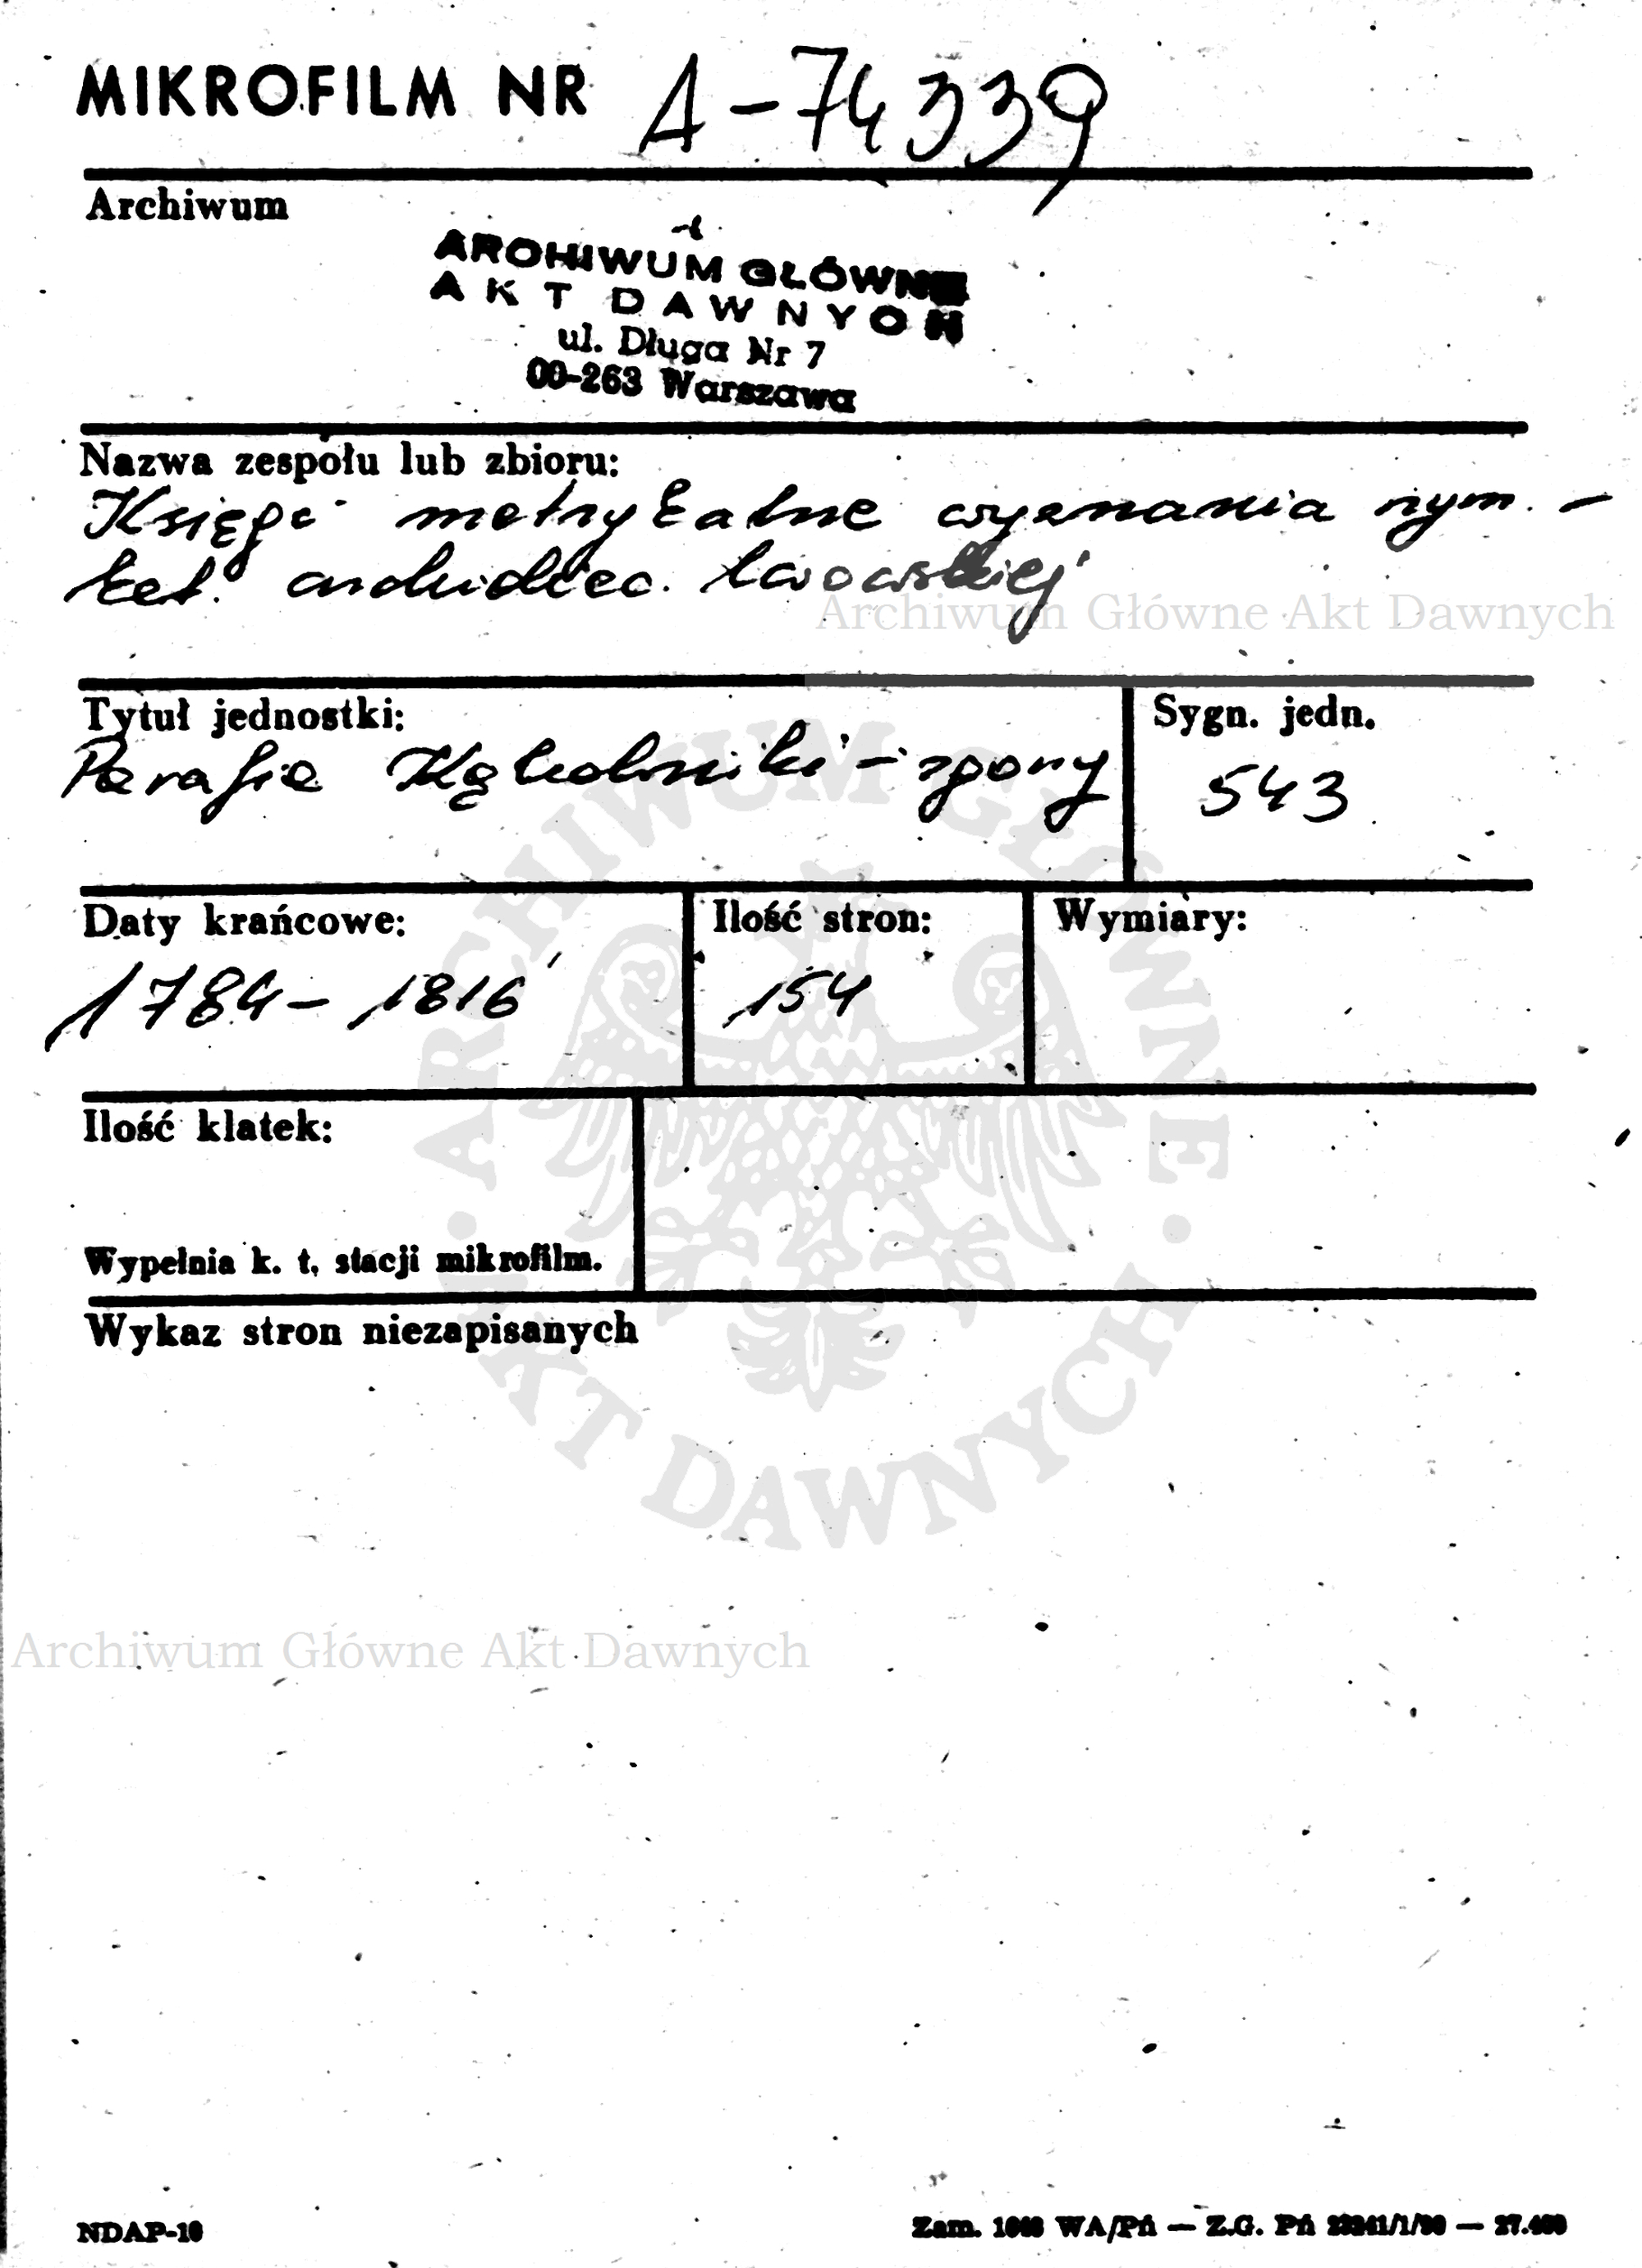 MIKROFILM NR A-74339
Archiwum
ARCHIWUM GŁÓWNE
AKT DAWNYCH
ul. Długa Nr 7
00-263 Warszawa
Nazwa zespołu lub zbioru:
Księgi metrykalne wyznania rzym.-
kat. archidiec. lwowskiej
Archiwum Główne Akt Dawnych
Tytuł jednostki:
Parafia Kąkolniki - zgony
Sygn. jedn.
543
Daty krańcowe:
1784 - 1816
Ilość stron:
154
Wymiary:
Ilość klatek:
Wypełnia k. t. stacji mikrofilm.
Wykaz stron niezapisanych
ARCHIWUM GŁÓWNE · AKT DAWNYCH ·
Archiwum Główne Akt Dawnych
NDAP-10
Zam. WA/Pń — Z.G. Pń —